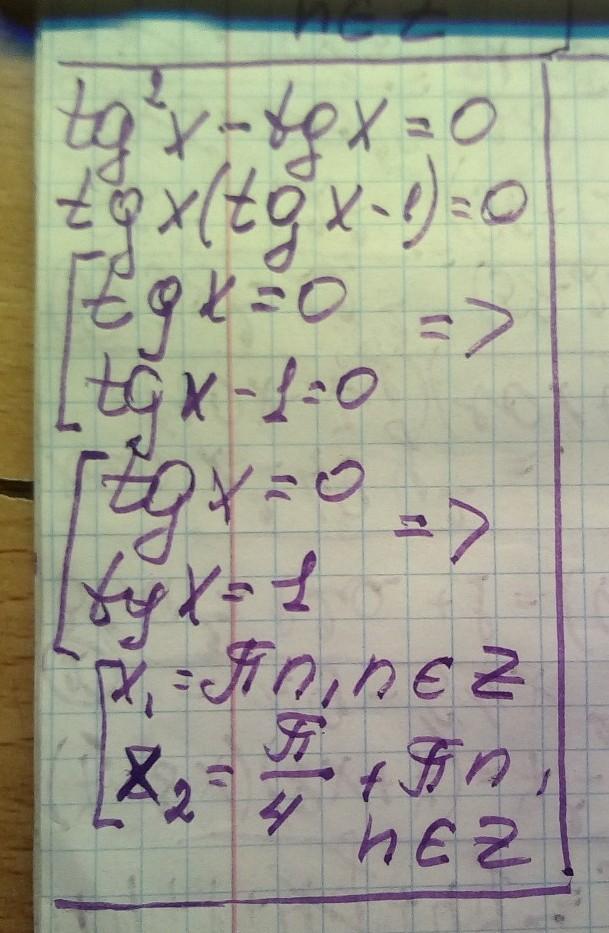 n∈Z
tg²x - tgx = 0
tgx(tgx - 1) = 0
[tgx = 0 =>
tgx - 1 = 0
[tgx = 0 =>
tgx = 1
[x₁ = πn, n∈Z
x₂ = π/4 + πn,
n∈Z